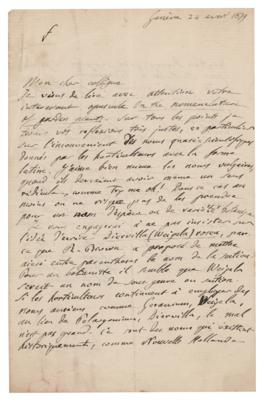 Genève 24 avril 1879
Mon cher collègue
Je viens de lire avec attention votre
intéressant opuscule On the nomenclature
of garden plants. Sur tous les points je
trouve vos réflexions très justes, en particulier
sur l'inconvénient des noms quasi scientifiques
donnés par les horticulteurs avec la forme
latine. J'aime bien mieux les noms vulgaires,
quand ils devraient avoir même un sens
ridicule, comme try me oh! Dans ce cas au
moins on ne risque pas de les prendre
pour un nom d'espèce ou de variété botanique
Je vous engagerai à ne pas insister sur
l'idée d'écrire Diervilla (Weigela) rosea, par
ce que R. Brown a proposé de mettre
ainsi entre parenthèses le nom de la section.
Pour un botaniste il semble que Weigela
serait un nom de sous genre ou section
Si les horticulteurs continuent à employer des
noms anciens comme Geranium, Weigela,
au lieu de Pelargonium, Diervilla, le mal
n'est pas grand. Ce sont des noms qui existent
historiquement, comme Nouvelle Hollande